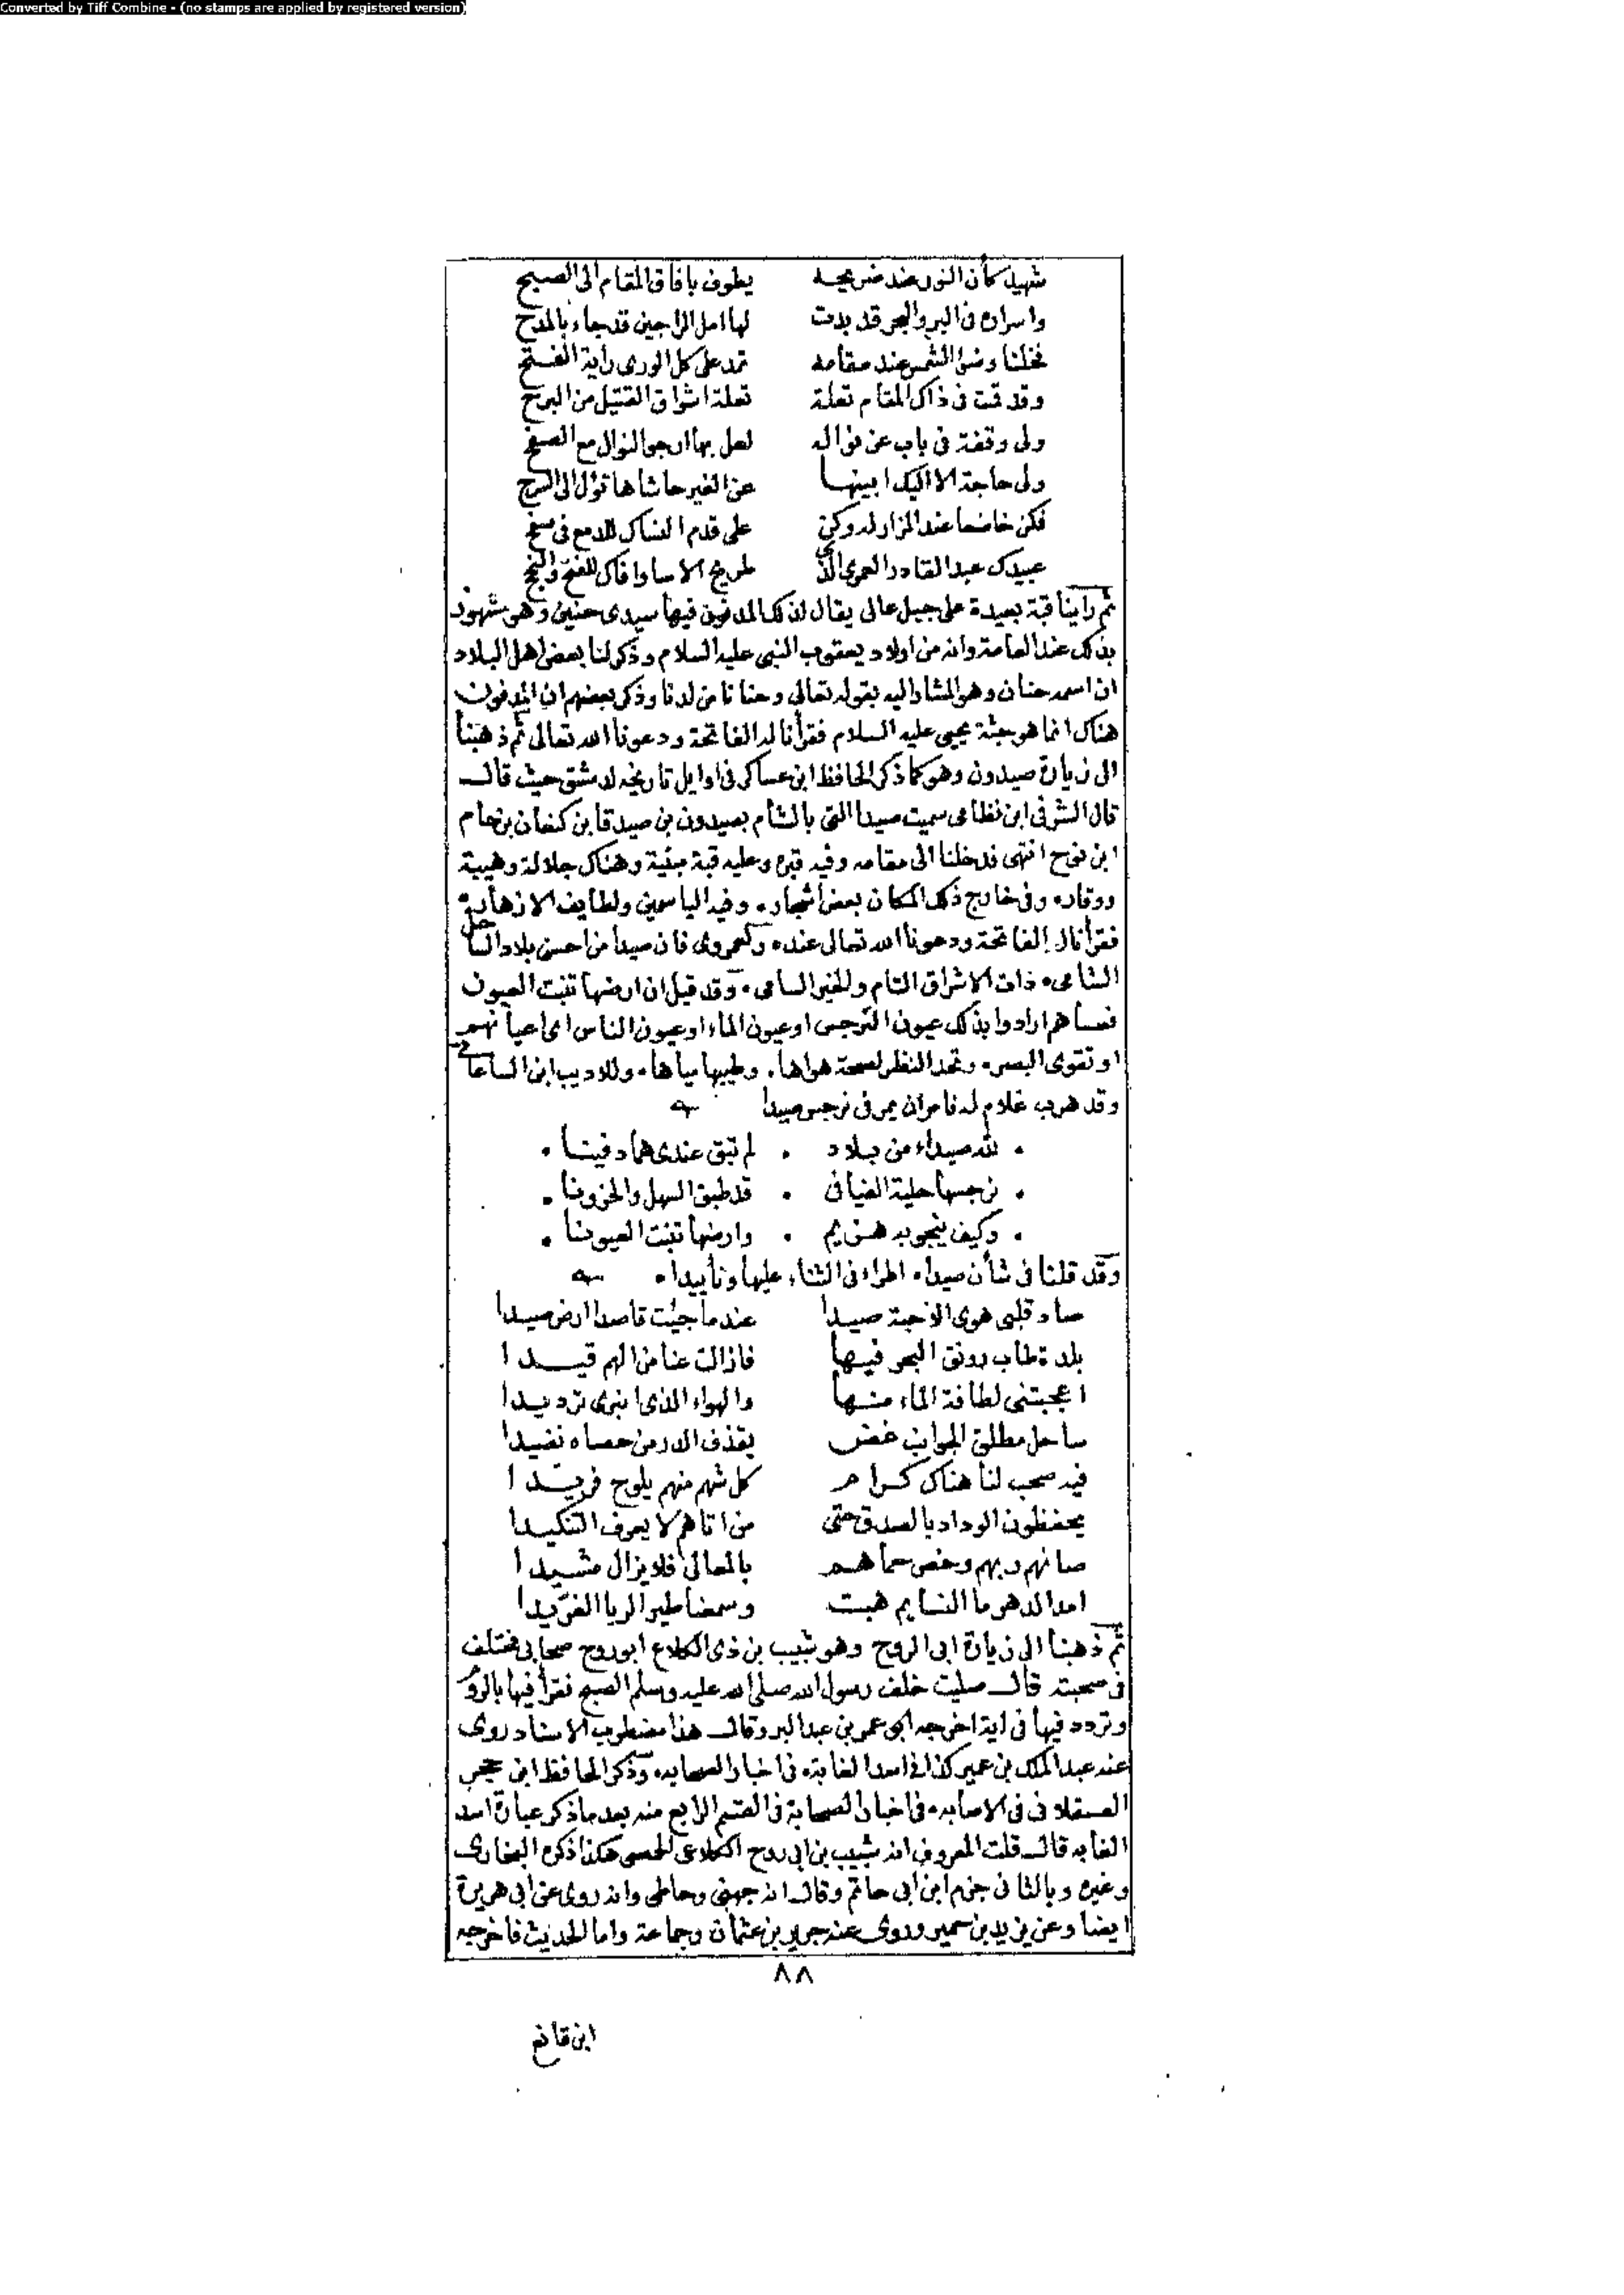 Converted by Tiff Combine - (no stamps are applied by registered version)
شهيد كأن النور عند ضريحه يطوف بافاق المقام الى الصبح
واسراره فى البر والبحر قد بدت لها امل الراجين قد جاء بالمدح
دخلنا وضوء الشمس عند مقامه تمد على كل الورى راية الفتح
وقد قمت فى ذاك المقام تعلة تعلة اشواق القتيل من البرح
ولى وقفة فى باب عن نواله لعل بها ارجو النوال مع الصفح
ولى حاجة الا اليك ابينها عن الغير حاشاها تؤل الى الشرح
فكن خاضعا عند المزار له وكن على قدم النساك للدمع فى سفح
عبيدك عبد القادر العمرى الذى طريح الاسا وافاك للفتح والنجح
ثم راينا قبة بعيدة على جبل عالى يقال لذلك المدفون فيها سيدى حنين وهو مشهور
بذلك عند العامة وانه من اولاد يعقوب النبى عليه السلام وذكر لنا بعض اهل البلاد
ان اسمه حنان وهو المشار اليه بقوله تعالى وحنانا من لدنا وذكر بعضهم ان المدفون
هناك انما هو جثة يحيى عليه السلام فقرأنا له الفاتحة ودعونا الله تعالى ثم ذهبنا
الى زيارة صيدون وهو كما ذكر الحافظ ابن عساكر فى اوايل تاريخه لدمشق حيث قال
قال الشرفى ابن نظامى سميت صيدا التى بالشام بصيدون بن صيدقا بن كنعان بن حام
ابن نوح انتهى فدخلنا الى مقامه وفيه قبره وعليه قبة مبنية وهناك جلالة وهيبة
ووقار، وفى خارج ذلك المكان بعض اشجار، وفيه الياسمين ولطايف الازهار،
فقرأنا له الفاتحة ودعونا الله تعالى عنده، ولعمرى فان صيدا من احسن بلاد الساحل
الشامى، ذات الاشراق التام والخير السامى، وقد قيل ان ارضها تنبت العيون
فعساهم ارادوا بذلك عيون النرجس او عيون الماء او عيون الناس اى اعيانهم
او تقوى البصر، وتحد النظر لصحة هواها، وطيبها مياها، وللاديب ابن الساعاتى
وقد هرب غلام له فامر ان يمر فى نرجس صيدا
لله صيداء من بلاد . لم تبق عندى هما دفينا .
نرجسها حلية الفيافى . قد طبق السهل والحزونا .
وكيف ينجو به هزيم . وارضها تنبت العيونا .
وقد قلنا فى شأن صيداء، اطراء فى الثناء عليها وتأييدا،
صاد قلبى هوى الاحبة صيدا عندما جئت قاصدا ارض صيدا
بلدة طاب رونق البحر فيها فازالت عنا من الهم قيدا
اعجبتنى لطافة الماء منها والهواء الذى انبرى ترديدا
ساحل مطلق الجوانب غض يقذف الدر من حصاه نضيدا
فيه صحب لنا هناك كرام كل شهم منهم يلوح فريدا
يحفظون الوداد بالصدق حتى من اتاهم لا يعرف التنكيدا
صانهم ربهم وخص حماهم بالمعالى فلا يزال مشيدا
امد الدهر ما النسايم هبت وسمعنا طير الربا الغريدا
ثم ذهبنا الى زيارة ابى الروح وهو شبيب بن ذى الكلاع ابو روح صحابى مختلف
فى صحبته قال صليت خلف رسول الله صلى الله عليه وسلم الصبح فقرأ فيها بالروم
وتردد فيها فى اية اخرجه ابى عمر بن عبد البر وقال هذا مضطرب الاسناد روى
عنه عبد الملك بن عمير كذا فى اسد الغابة، فى اخبار الصحابه، وذكر الحافظ ابن حجر
العسقلانى فى الاصابه، فى اخبار الصحابة فى القسم الرابع منه بعد ما ذكر عبارة اسد
الغابه قال قلت المعروف انه شبيب بن ابى روح الكلاعى الحمصى هكذا ذكره البخارى
وغيره وبالثانى جزم ابن ابى حاتم وقال انه جهنى وحاطى وانه روى عن ابى هريرة
ايضا وعن يزيد بن حمير وروى عنه جرير بن عثمان وجماعة واما الحديث فاخرجه
٨٨
ابن قانع